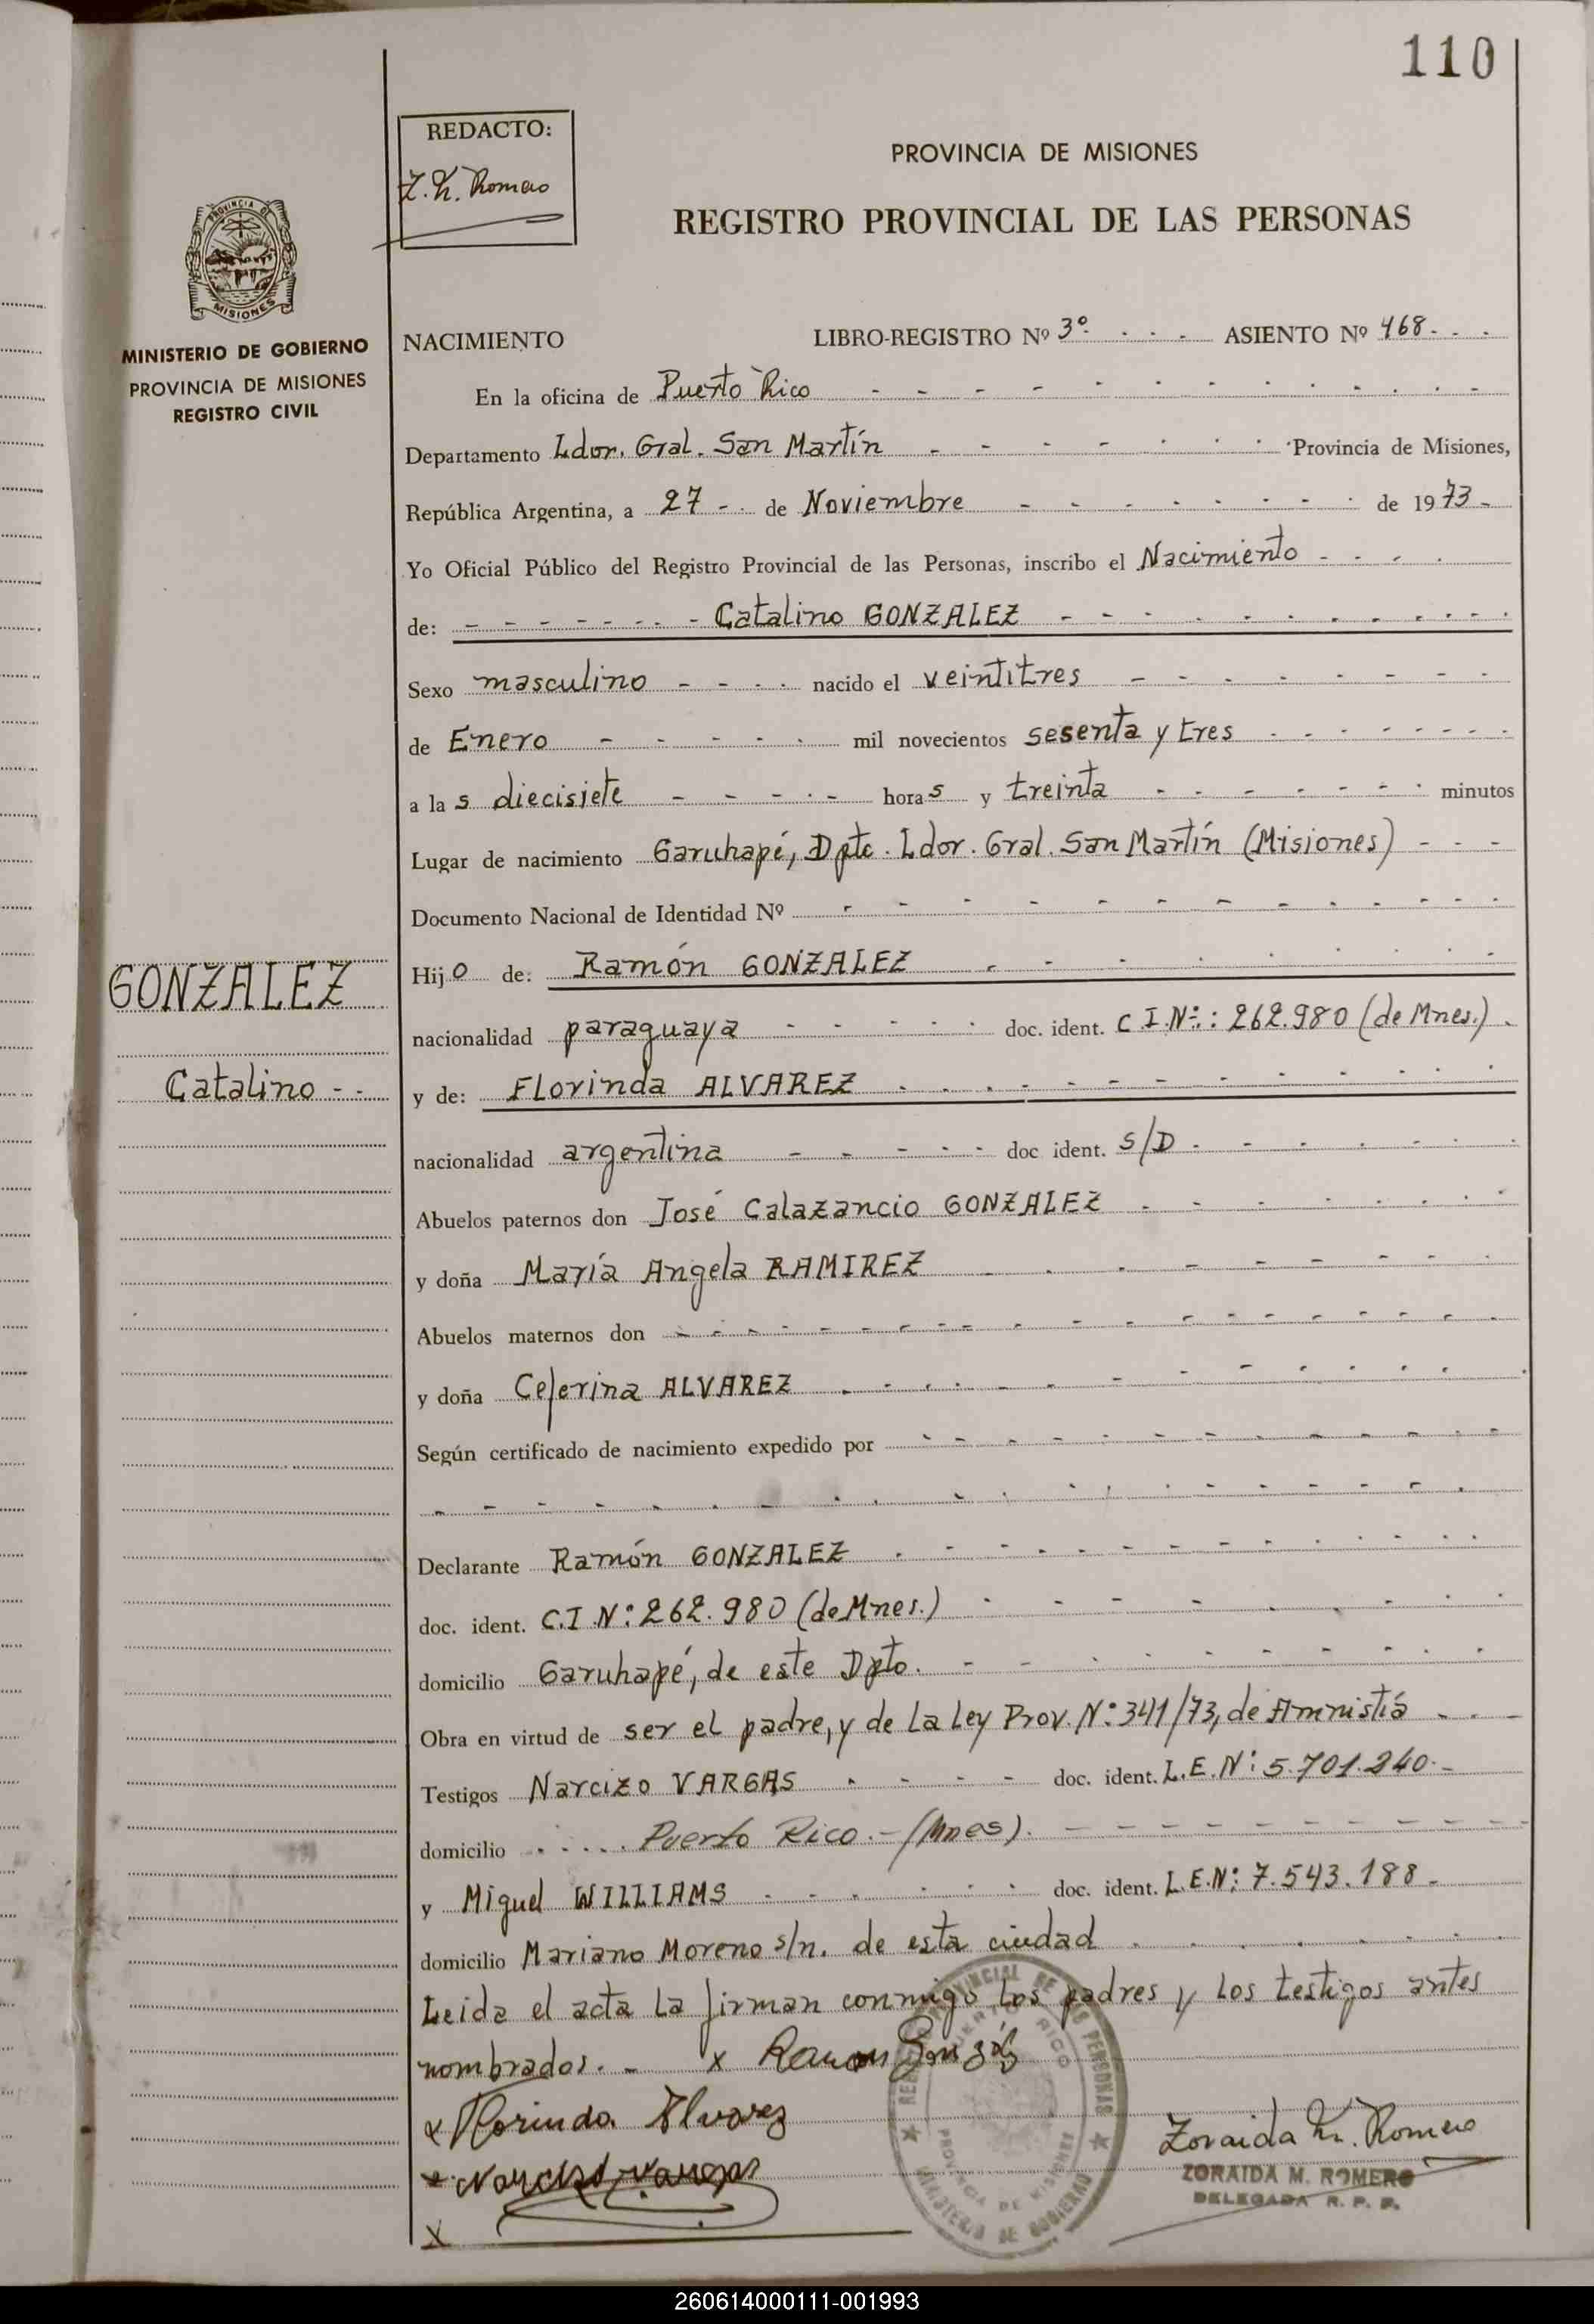 110
REDACTO:
Z. M. Romero
PROVINCIA DE MISIONES
REGISTRO PROVINCIAL DE LAS PERSONAS
PROVINCIA DE
MISIONES
MINISTERIO DE GOBIERNO
PROVINCIA DE MISIONES
REGISTRO CIVIL
NACIMIENTO LIBRO-REGISTRO Nº 3º - - - - ASIENTO Nº 468 - - -
En la oficina de Puerto Rico - - - - - - - - - - -
Departamento Ldor. Gral. San Martín - - - - - - - Provincia de Misiones,
República Argentina, a 27 - - de Noviembre - - - - - - - de 1973 -
Yo Oficial Público del Registro Provincial de las Personas, inscribo el Nacimiento - - - -
de: - - - - - - - Catalino GONZALEZ - - - - - - - - - -
Sexo masculino - - - - nacido el veintitres - - - - - - - -
de Enero - - - - - mil novecientos sesenta y tres - - - - - - -
a las diecisiete - - - - - horas y treinta - - - - - - - minutos
Lugar de nacimiento Garuhapé, Dpto. Ldor. Gral. San Martín (Misiones) - - -
Documento Nacional de Identidad Nº - - - - - - - - - - -
GONZALEZ
Catalino - -
Hijo de: Ramón GONZALEZ - - - - - - -
nacionalidad paraguaya - - - - - doc. ident. C I.Nº: 262.980 (de Mnes.) .
y de: Florinda ALVAREZ - - - - - - - - - - -
nacionalidad argentina - - - - - doc ident. S/D - - - - - -
Abuelos paternos don José Calazancio GONZALEZ - - - - - - -
y doña María Angela RAMIREZ - - - - - - - -
Abuelos maternos don - - - - - - - - - - - - - -
y doña Ceferina ALVAREZ - - - - - - - - - - -
Según certificado de nacimiento expedido por - - - - - - - - - - -
- - - - - - - - - - - - - - - - - -
Declarante Ramón GONZALEZ - - - - - - - - - - -
doc. ident. C.I.Nº: 262.980 (de Mnes.) - - - - - - - -
domicilio Garuhapé, de este Dpto. - - - - - - - - -
Obra en virtud de ser el padre, y de La Ley Prov. Nº: 341/73, de Amnistía - - -
Testigos Narcizo VARGAS - - - - doc. ident. L.E.Nº: 5.701.240.-
domicilio - - - - Puerto Rico.- (Mnes). - - - - - - - - -
y Miguel WILLIAMS - - - - - - doc. ident. L.E.Nº: 7.543.188 -
domicilio Mariano Moreno s/n. de esta ciudad - - - - - -
Leida el acta La firman conmigo Los padres y Los testigos antes
nombrados. - x Ramon González
x Florinda Alvarez
x Narciso Vargas
x
REGISTRO PROVINCIAL DE LAS PERSONAS
PUERTO RICO
PROVINCIA DE MISIONES
MINISTERIO DE GOBIERNO
Zoraida M. Romero
ZORAIDA M. ROMERO
DELEGADA R. P. P.
260614000111-001993